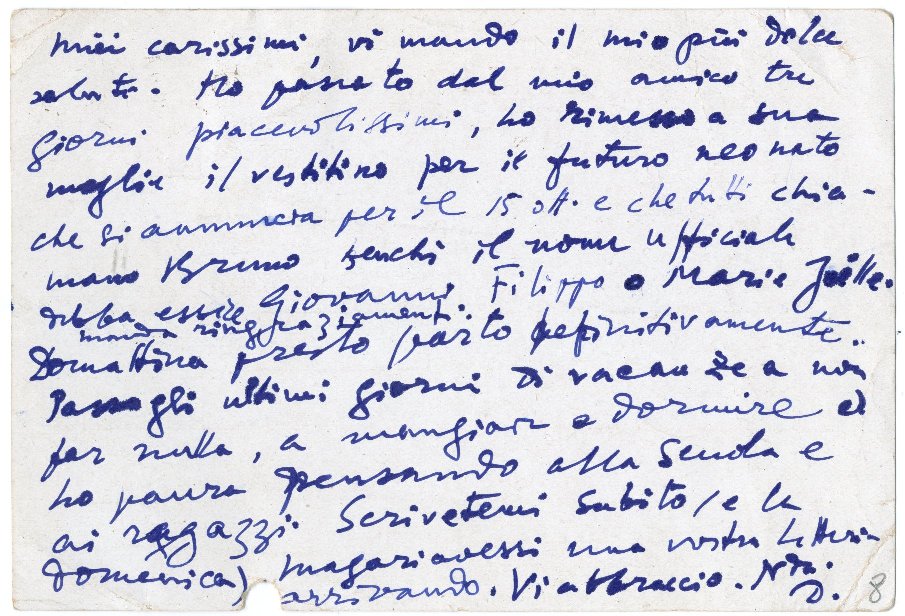 Miei carissimi, vi mando il mio più dolce
saluto. Ho passato dal mio amico tre
giorni piacevolissimi, ho rimesso a sua
moglie il vestitino per il futuro neonato
che si annuncia per il 15 ott. e che tutti chia-
mano Bruno benchè il nome ufficiale
debba essere Giovanni Filippo o Marie Joëlle.
manda ringraziamenti.
Domattina presto parto definitivamente.
Passo gli ultimi giorni di vacanze a non
far nulla, a mangiare e dormire e
ho paura pensando alla scuola e
ai ragazzi. Scrivetemi subito (e la
domenica) magari avessi una vostra letterina
arrivando. Vi abbraccio.
8